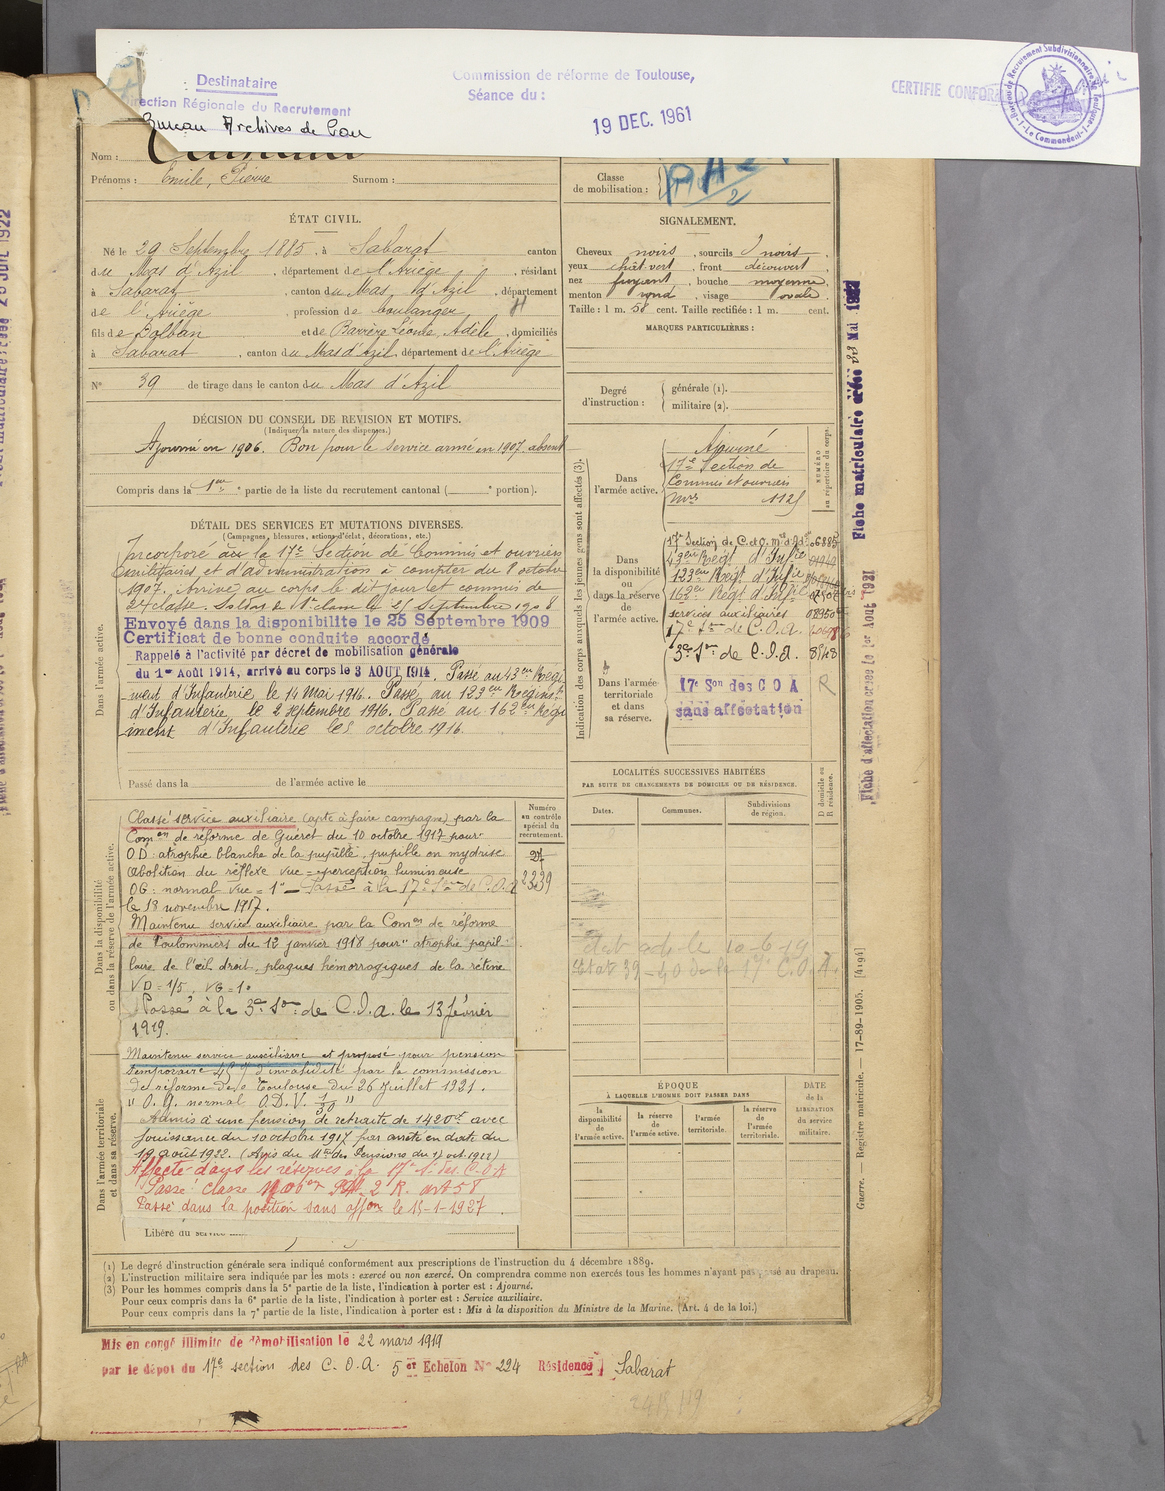 Destinataire
Direction Régionale du Recrutement
Bureau Archives de Pau
Commission de réforme de Toulouse,
Séance du :
19 DEC. 1961
CERTIFIE CONFORME
Bureau de Recrutement Subdivisionnaire de Toulouse
Le Commandant
Nom :
Prénoms : Emile, Pierre Surnom :
Classe
de mobilisation :
ÉTAT CIVIL.
Né le 29 Septembre 1885, à Sabarat canton
du Mas d'Azil, département de l'Ariège, résidant
à Sabarat, canton du Mas d'Azil, département
de l'Ariège, profession de boulanger,
fils de Bolban et de Barrère Léonie, Adèle, domiciliés
à Sabarat, canton du Mas d'Azil, département de l'Ariège
N° 39 de tirage dans le canton du Mas d'Azil
SIGNALEMENT.
Cheveux noirs, sourcils noirs,
yeux chât. vert, front découvert,
nez fuyant, bouche moyenne,
menton rond, visage ovale.
Taille : 1 m. 58 cent. Taille rectifiée : 1 m. cent.
MARQUES PARTICULIÈRES :
Degré
d'instruction :
générale (1).
militaire (2).
DÉCISION DU CONSEIL DE REVISION ET MOTIFS.
(Indiquer la nature des dispenses.)
Ajourné en 1906. Bon pour le service armé en 1907, absent
Compris dans la 1ère partie de la liste du recrutement cantonal ( e portion).
DÉTAIL DES SERVICES ET MUTATIONS DIVERSES.
(Campagnes, blessures, actions d'éclat, décorations, etc.)
Dans l'armée active.
Incorporé à la 17e Section de Commis et ouvriers
militaires et d'administration à compter du 8 octobre
1907. Arrivé au corps le dit jour et commis de
2e classe. Soldat de 1e classe le 25 Septembre 1908
Envoyé dans la disponibilité le 25 Septembre 1909
Certificat de bonne conduite accordé
Rappelé à l'activité par décret de mobilisation générale
du 1er Août 1914, arrivé au corps le 3 AOUT 1914. Passé au 43e Régi
ment d'Infanterie le 14 Mai 1916. Passé au 123e Régiment
d'Infanterie le 2 septembre 1916. Passé au 162e Régi
ment d'Infanterie le 5 octobre 1916.
Passé dans la de l'armée active le
Indication des corps auxquels les jeunes gens sont affectés (3).
NUMÉRO
au répertoire du corps.
Dans
l'armée active.
Ajourné
17e Section de
Commis et ouvriers
mres 1125
Dans
la disponibilité
ou
dans la réserve
de
l'armée active.
17e Section de C. et O. m. d'Ad. 06885
43e Régt d'Infie
123e Régt d'Infie
162e Régt d'Infie
services auxiliaires 08950
17e Son de C.O.A.
3e Son de C.O.A. 8548
Dans l'armée
territoriale
et dans
sa réserve.
17e Son des C O A
sans affectation
R
LOCALITÉS SUCCESSIVES HABITÉES
PAR SUITE DE CHANGEMENTS DE DOMICILE OU DE RÉSIDENCE.
Dates. Communes. Subdivisions
de région.
D domicile ou
R résidence.
Etat 39-40 de la 17e C.O.A.
Numéro
au contrôle
spécial du
recrutement.
2339
Dans la disponibilité
ou dans la réserve de l'armée active.
Classé service auxiliaire (apte à faire campagne) par la
Comon de réforme de Guéret du 10 octobre 1917 pour
OD : atrophie blanche de la pupille, pupille en mydriase
abolition du réflexe vue = perception lumineuse
OG : normal vue = 1 — Passé à la 17e Son de C.O.A
le 18 novembre 1917.
Maintenu service auxiliaire par la Comon de réforme
de Coulommiers du 12 janvier 1918 pour "atrophie papil-
laire de l'œil droit, plaques hémorragiques de la rétine
VD = 1/5, VG = 1.
Passé à la 3e Son de C.O.A. le 13 février
1919.
Dans l'armée territoriale
et dans sa réserve.
Maintenu service auxiliaire et proposé pour pension
temporaire 45% d'invalidité par la commission
de réforme de Toulouse du 26 Juillet 1921.
" O. g. normal O.D.V. 1/50 "
Admis à une pension de retraite de 1420f avec
jouissance du 10 octobre 1917 par arrêté en date du
19 août 1922. (Avis du Mre des Pensions du 17 oct. 1922)
Affecté dans les réserves à la 17e S. des C.O.A
Passé classe Mobon 2 R. art 58
Passé dans la position sans affon le 15-1-1927.
Libéré du service
ÉPOQUE
À LAQUELLE L'HOMME DOIT PASSER DANS
la
disponibilité
de
l'armée active.
la réserve
de
l'armée active.
l'armée
territoriale.
la réserve
de
l'armée
territoriale.
DATE
de la
LIBÉRATION
du service
militaire.
(1) Le degré d'instruction générale sera indiqué conformément aux prescriptions de l'instruction du 4 décembre 1889.
(2) L'instruction militaire sera indiquée par les mots : exercé ou non exercé. On comprendra comme non exercés tous les hommes n'ayant pas passé au drapeau.
(3) Pour les hommes compris dans la 5e partie de la liste, l'indication à porter est : Ajourné.
Pour ceux compris dans la 6e partie de la liste, l'indication à porter est : Service auxiliaire.
Pour ceux compris dans la 7e partie de la liste, l'indication à porter est : Mis à la disposition du Ministre de la Marine. (Art. 4 de la loi.)
Mis en congé illimité de démobilisation le 22 mars 1919
par le dépôt du 17e section des C. O. A. 5e Echelon N° 224 Résidence Sabarat
Guerre. Registre matricule. — 17-89-1905. [4194]
Fiche d'affectation créée le 1er Aout 1921
Fiche matriculaire créée